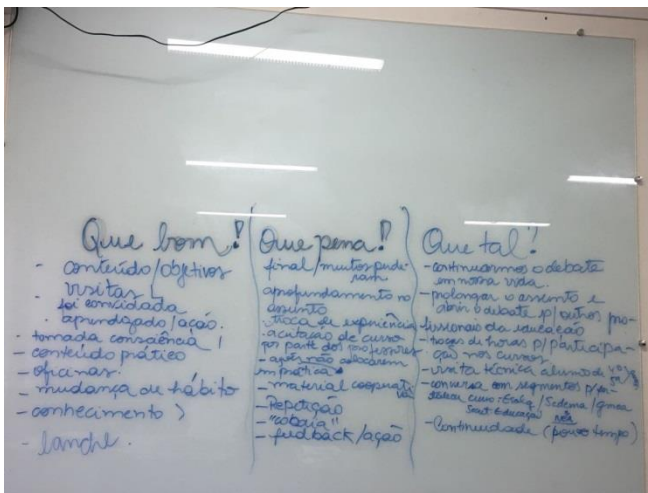 Que bom!
- conteúdo/objetivos
- visitas
foi convidada
- aprendizado/ação.
- tomada consciência!
- conteúdo prático
- oficinas.
- mudança de hábito
- conhecimento
- lanche.
Que pena!
final/muitos pude
ram
aprofundamento no
assunto
- troca de experiência
- aceitação de curso
por parte dos professores
- após não colocarem
em prática
- material cooperati
- Repetição
- "cobaia"
- feedback/ação
Que tal!
- continuarmos o debate
em nossa vida.
- prolongar o assunto e
abrir o debate p/ outros pro-
fissionais da educação
- de horas p/ participa-
ção nos cursos
- visita técnica alunos de
- conversa com segmentos
como
Smart Educação
- Continuidade (pouco tempo)